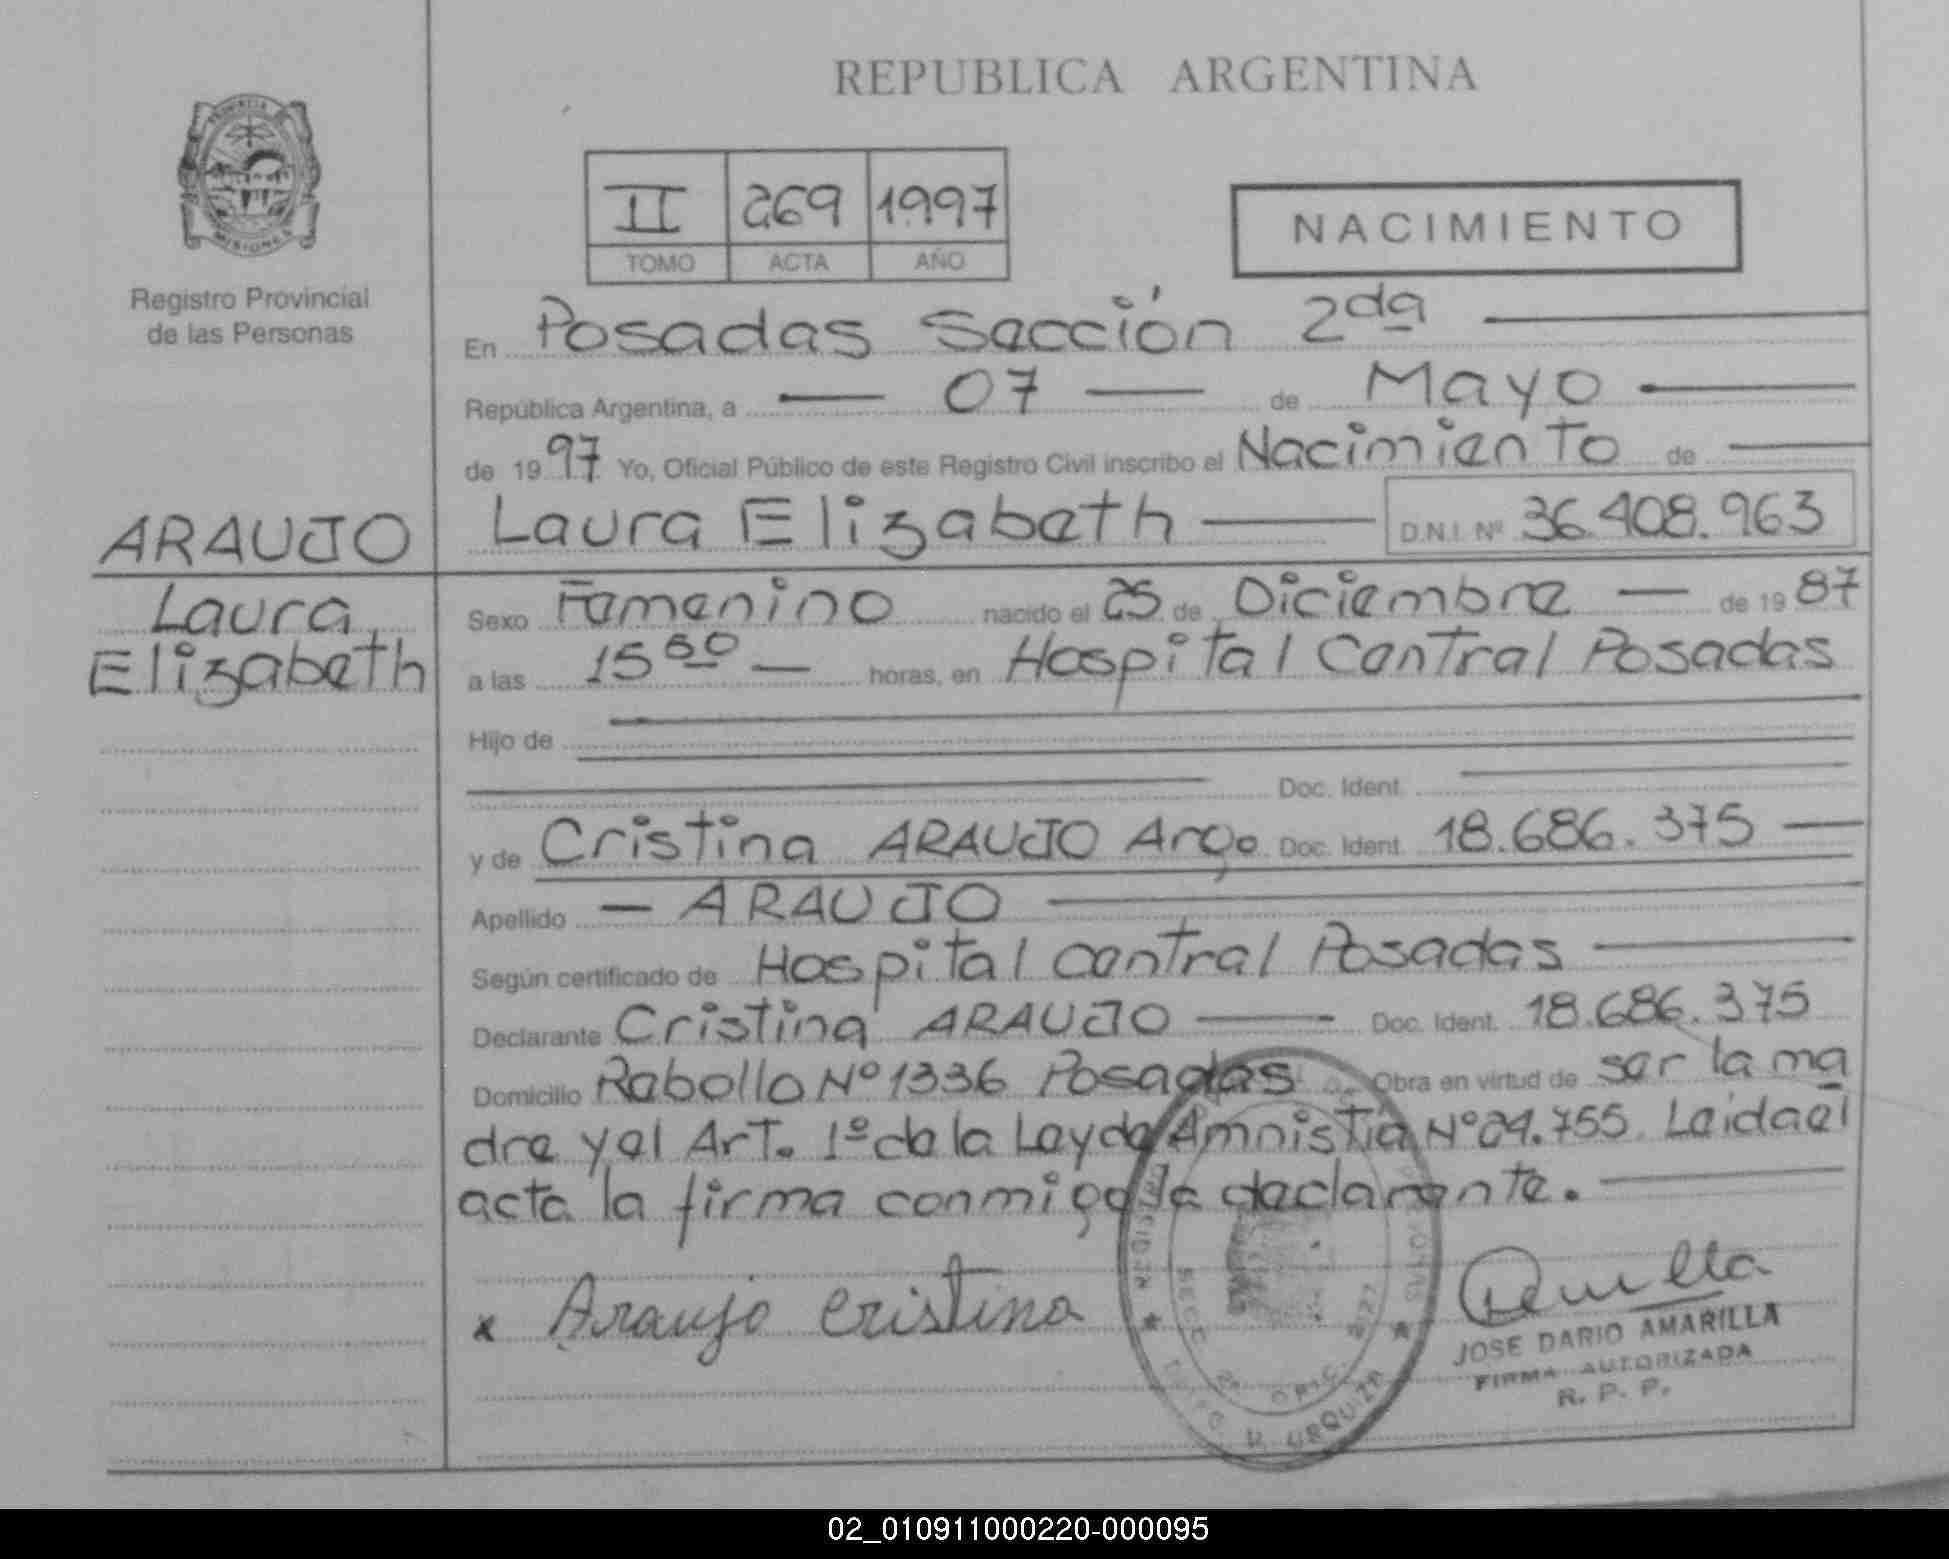 REPUBLICA ARGENTINA
PROVINCIA DE
MISIONES
Registro Provincial
de las Personas
II 269 1997
TOMO ACTA AÑO
NACIMIENTO
En Posadas Sección 2da
República Argentina, a 07 de Mayo
de 1997 Yo, Oficial Público de este Registro Civil inscribo el Nacimiento de
ARAUJO
Laura
Elizabeth
Laura Elizabeth D.N.I. Nº 36.408.963
Sexo Femenino nacido el 25 de Diciembre de 1987
a las 15 50 horas, en Hospital Central Posadas
Hijo de
Doc. Ident.
y de Cristina ARAUJO Arg. Doc. Ident. 18.686.375
Apellido ARAUJO
Según certificado de Hospital Central Posadas
Declarante Cristina ARAUJO Doc. Ident. 18.686.375
Domicilio Rabollo Nº 1336 Posadas Obra en virtud de ser la ma
dre y el Art. 1º de la Ley de Amnistia Nº 24.755. Leida el
acta la firma conmigo la declarante.
x Araujo Cristina
SECC. 2ª
URQUIZA
JOSE DARIO AMARILLA
FIRMA AUTORIZADA
R. P. P.
02_010911000220-000095